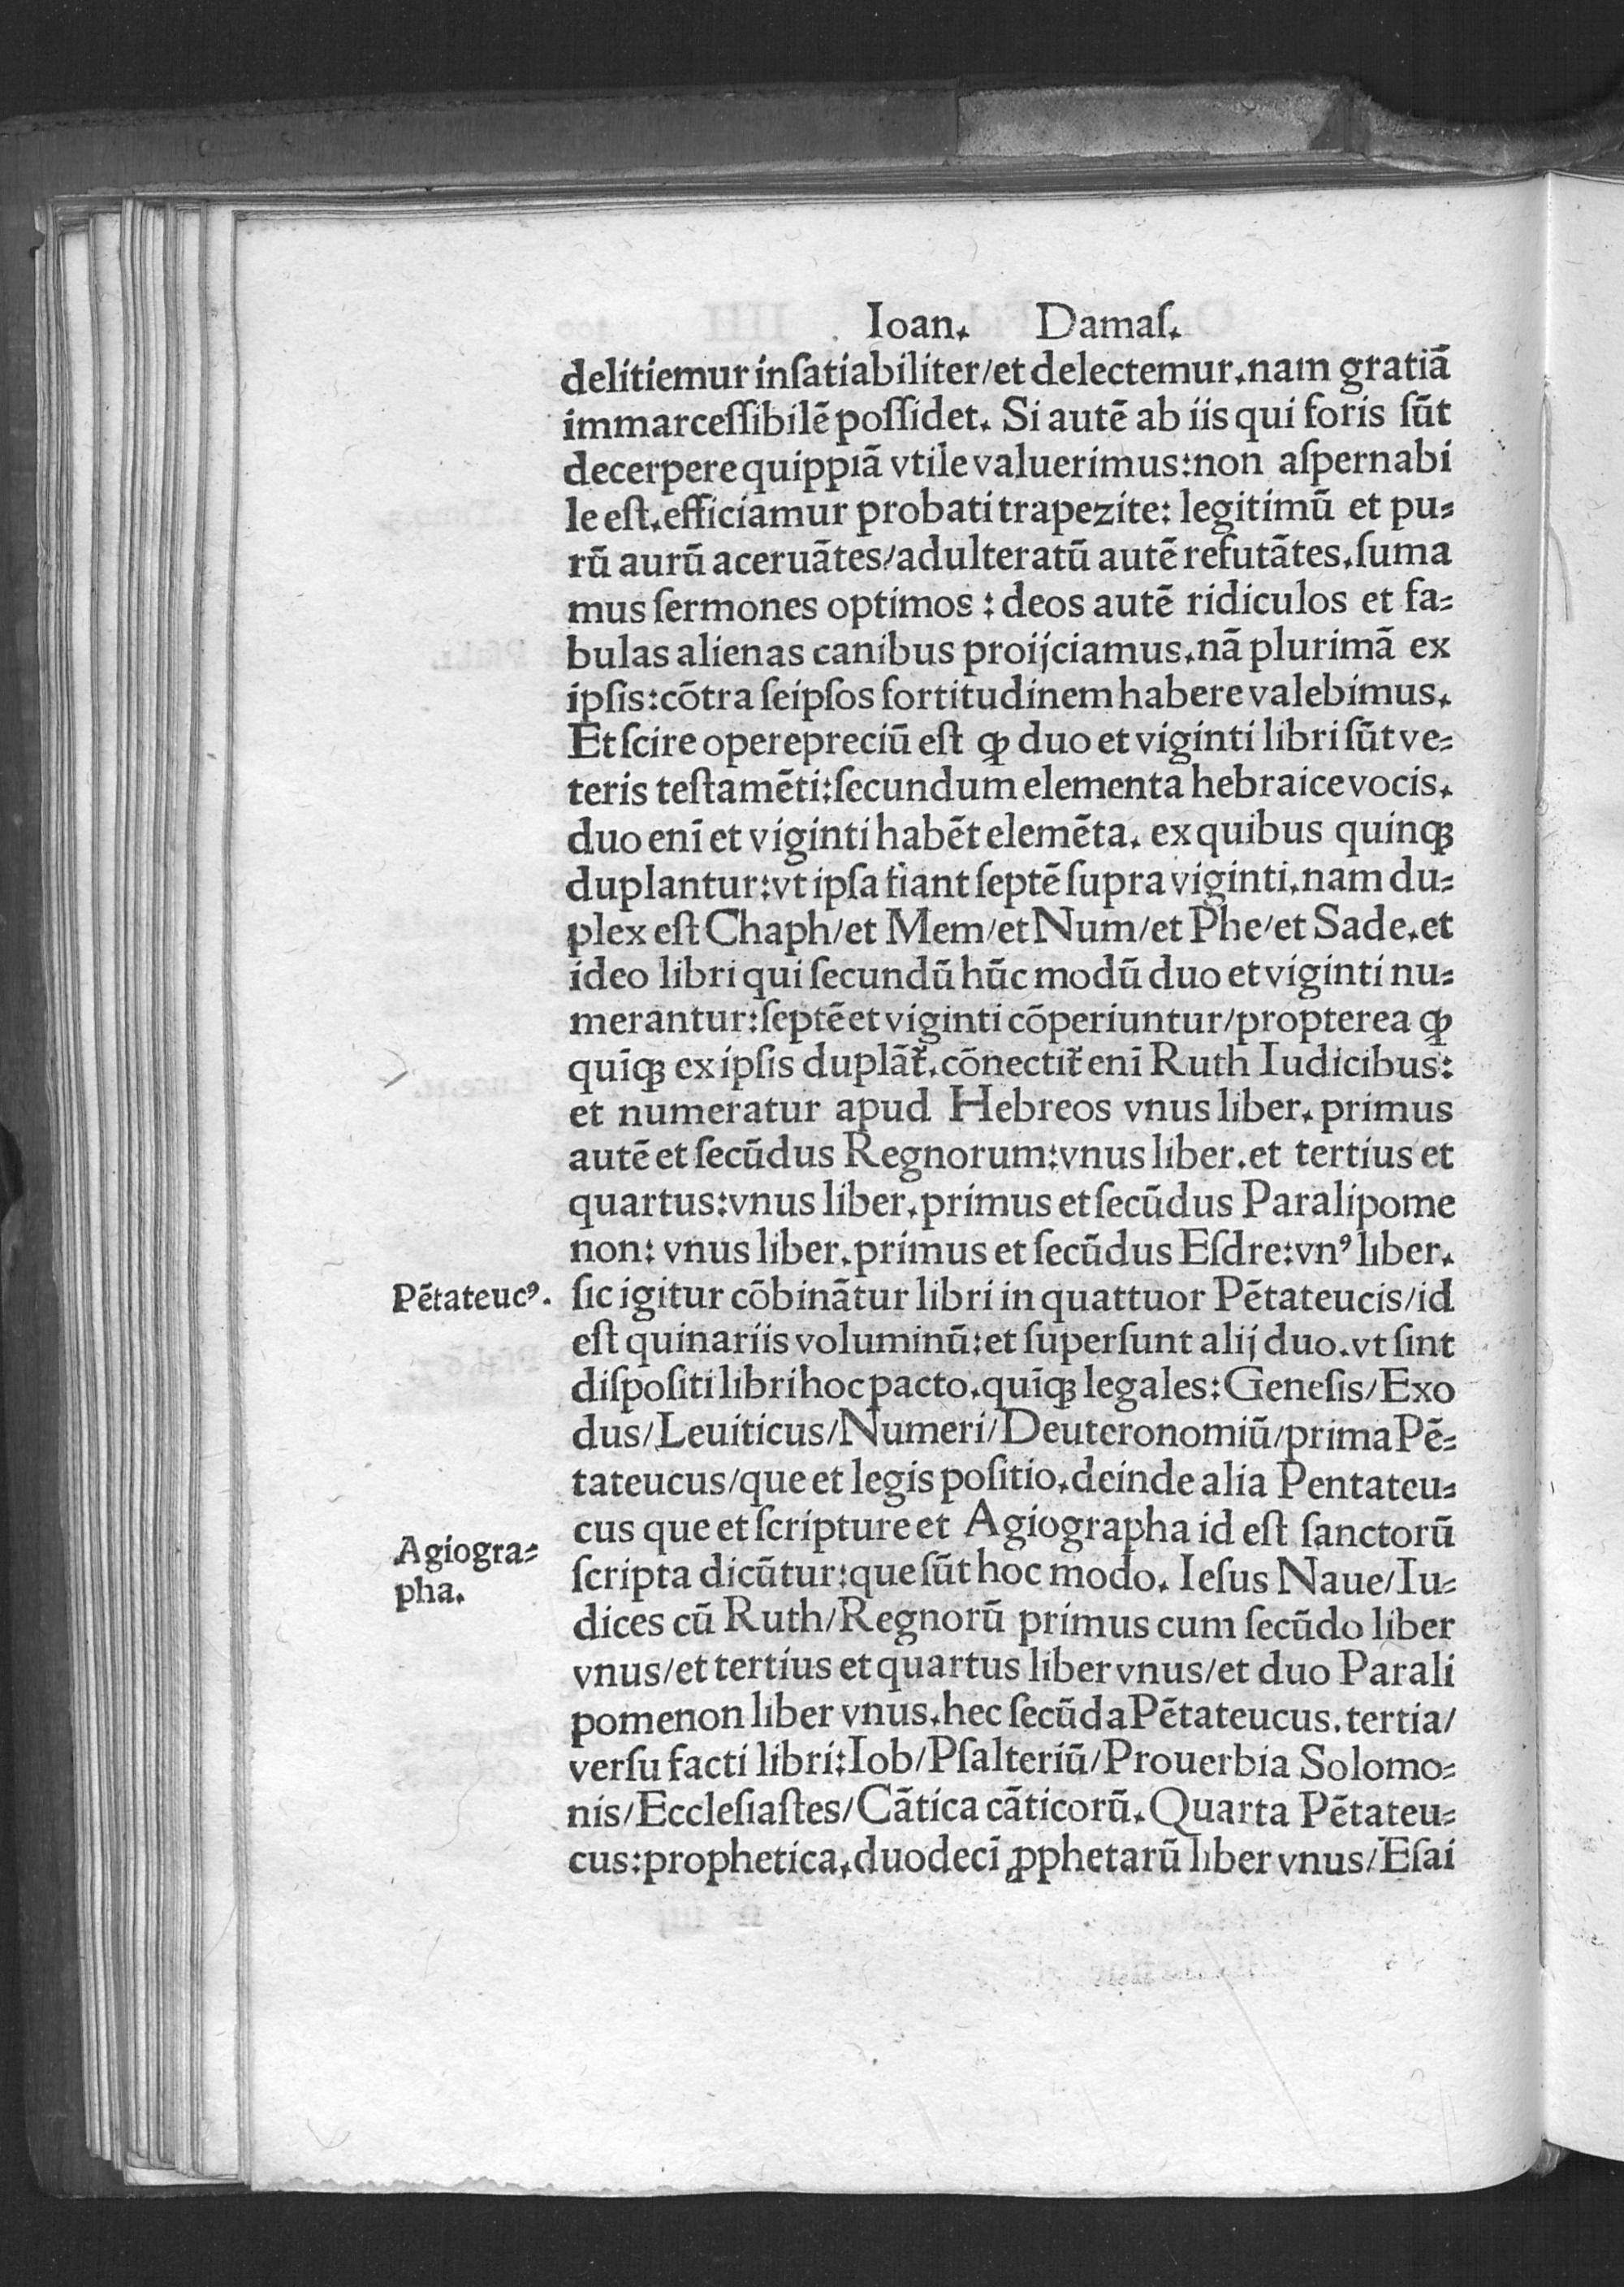 Ioan. Damaſ.
delitiemur inſatiabiliter/et delectemur.nam gratiā
immarceſſibilē poſſidet. Si autē ab iis qui foris ſūt
decerpere quippiā vtile valuerimus:non aſpernabi
le eſt.efficiamur probati trapezite: legitimū et pu⸗
rū aurū aceruātes/adulteratū autē refutātes.ſuma
mus ſermones optimos : deos autē ridiculos et fa⸗
bulas alienas canibus proijciamus.nā plurimā ex
ipſis:cōtra ſeipſos fortitudinem habere valebimus.
Et ſcire operepreciū eſt ꝙ duo et viginti libri ſūt ve⸗
teris teſtamēti:ſecundum elementa hebraice vocis.
duo enī et viginti habēt elemēta. ex quibus quinqꝫ
duplantur:vt ipſa fiant ſeptē ſupra viginti.nam du⸗
plex eſt Chaph/et Mem/et Num/et Phe/et Sade.et
ideo libri qui ſecundū hūc modū duo et viginti nu⸗
merantur:ſeptē et viginti cōperiuntur/propterea ꝙ
quīqꝫ ex ipſis duplāt̃.cōnectit̃ enī Ruth Iudicibus:
et numeratur apud Hebreos vnus liber. primus
autē et ſecūdus Regnorum:vnus liber.et tertius et
quartus:vnus liber.primus et ſecūdus Paralipome
non: vnus liber.primus et ſecūdus Eſdre:vnꝰ liber.
Pētateucꝰ.
ſic igitur cōbināтur libri in quattuor Pētateucis/id
eſt quinariis voluminū:et ſuperſunt alij duo.vt ſint
diſpoſiti libri hoc pacto.quīqꝫ legales:Geneſis/Exo
dus/Leuiticus/Numeri/Deuteronomiū/prima Pē⸗
tateucus/que et legis poſitio.deinde alia Pentateu⸗
cus que et ſcripture et Agiographa id eſt ſanctorū
Agiogra⸗
pha.
ſcripta dicūtur:que ſūt hoc modo. Ieſus Naue/Iu⸗
dices cū Ruth/Regnorū primus cum ſecūdo liber
vnus/et tertius et quartus liber vnus/et duo Parali
pomenon liber vnus.hec ſecūda Pētateucus.tertia/
verſu facti libri:Iob/Pſalteriū/Prouerbia Solomo⸗
nis/Eccleſiaſtes/Cātica cāticorū.Quarta Pētateu⸗
cus:prophetica.duodecī ꝓphetarū liber vnus/Eſai